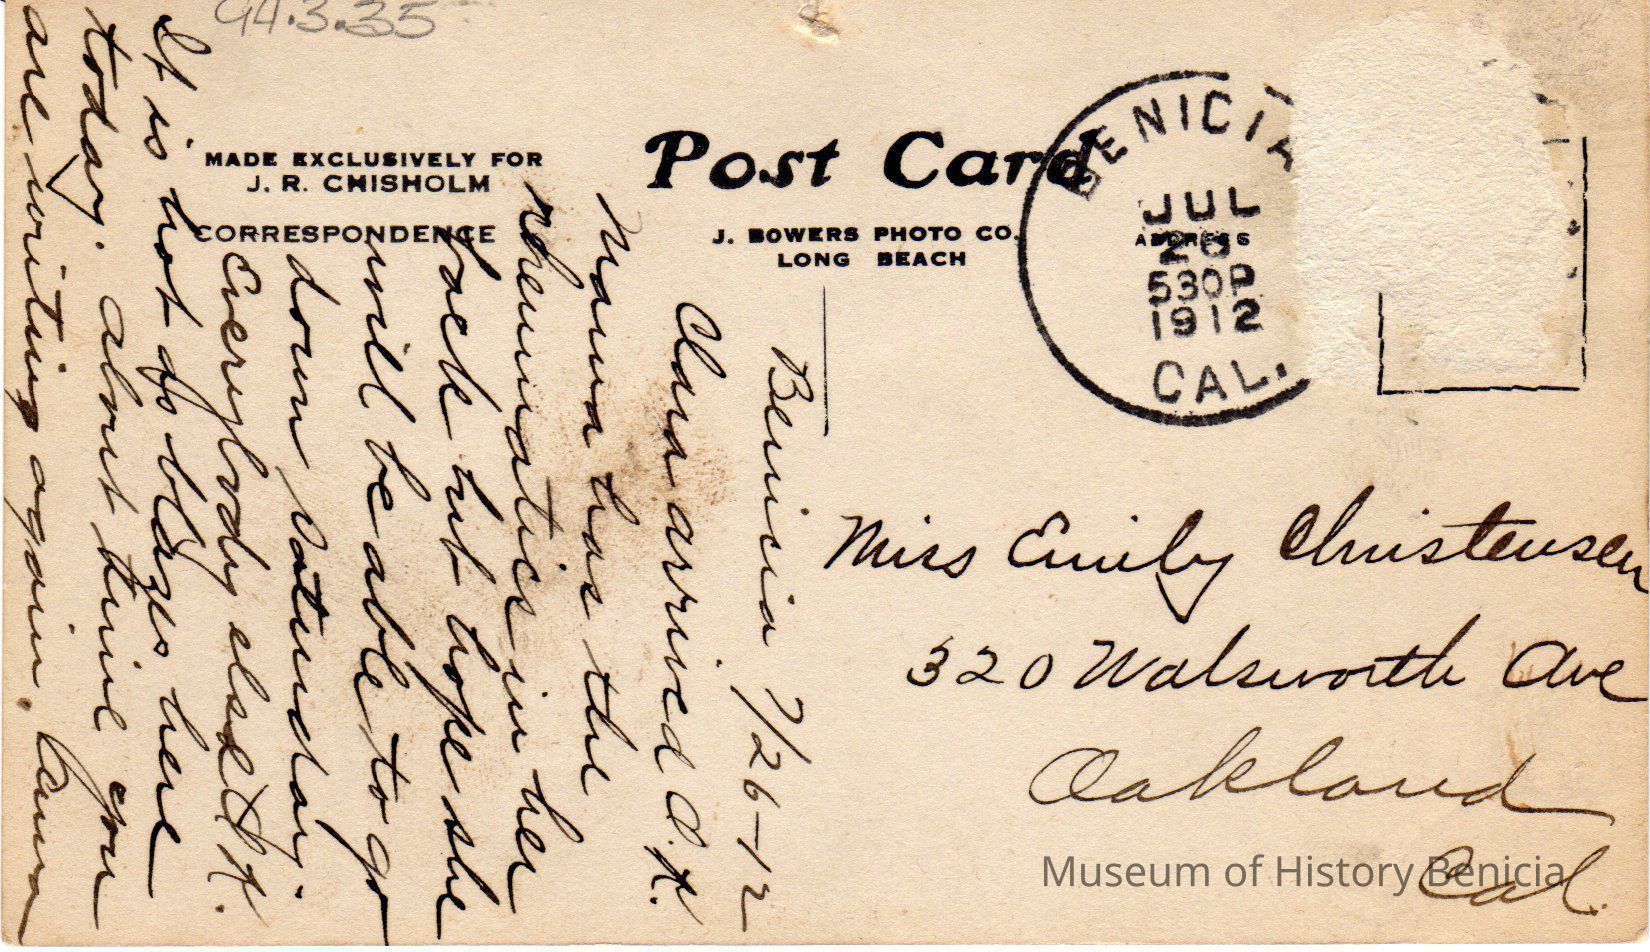 94.3.35
MADE EXCLUSIVELY FOR
J. R. CHISHOLM
CORRESPONDENCE
Post Card
J. BOWERS PHOTO CO.
LONG BEACH
ADDRESS
BENICIA
JUL
26
530P
1912
CAL.
Benicia 7/26-12
Clara arrived O.K.
Mama has the
rheumatics in her
back but hope she
will be able to go
down Saturday.
Everybody else O.K.
It is hot as blazes here
today. About time you
are writing again.
Miss Emily Christensen
320 Walsworth Ave
Oakland
Cal.
Museum of History Benicia